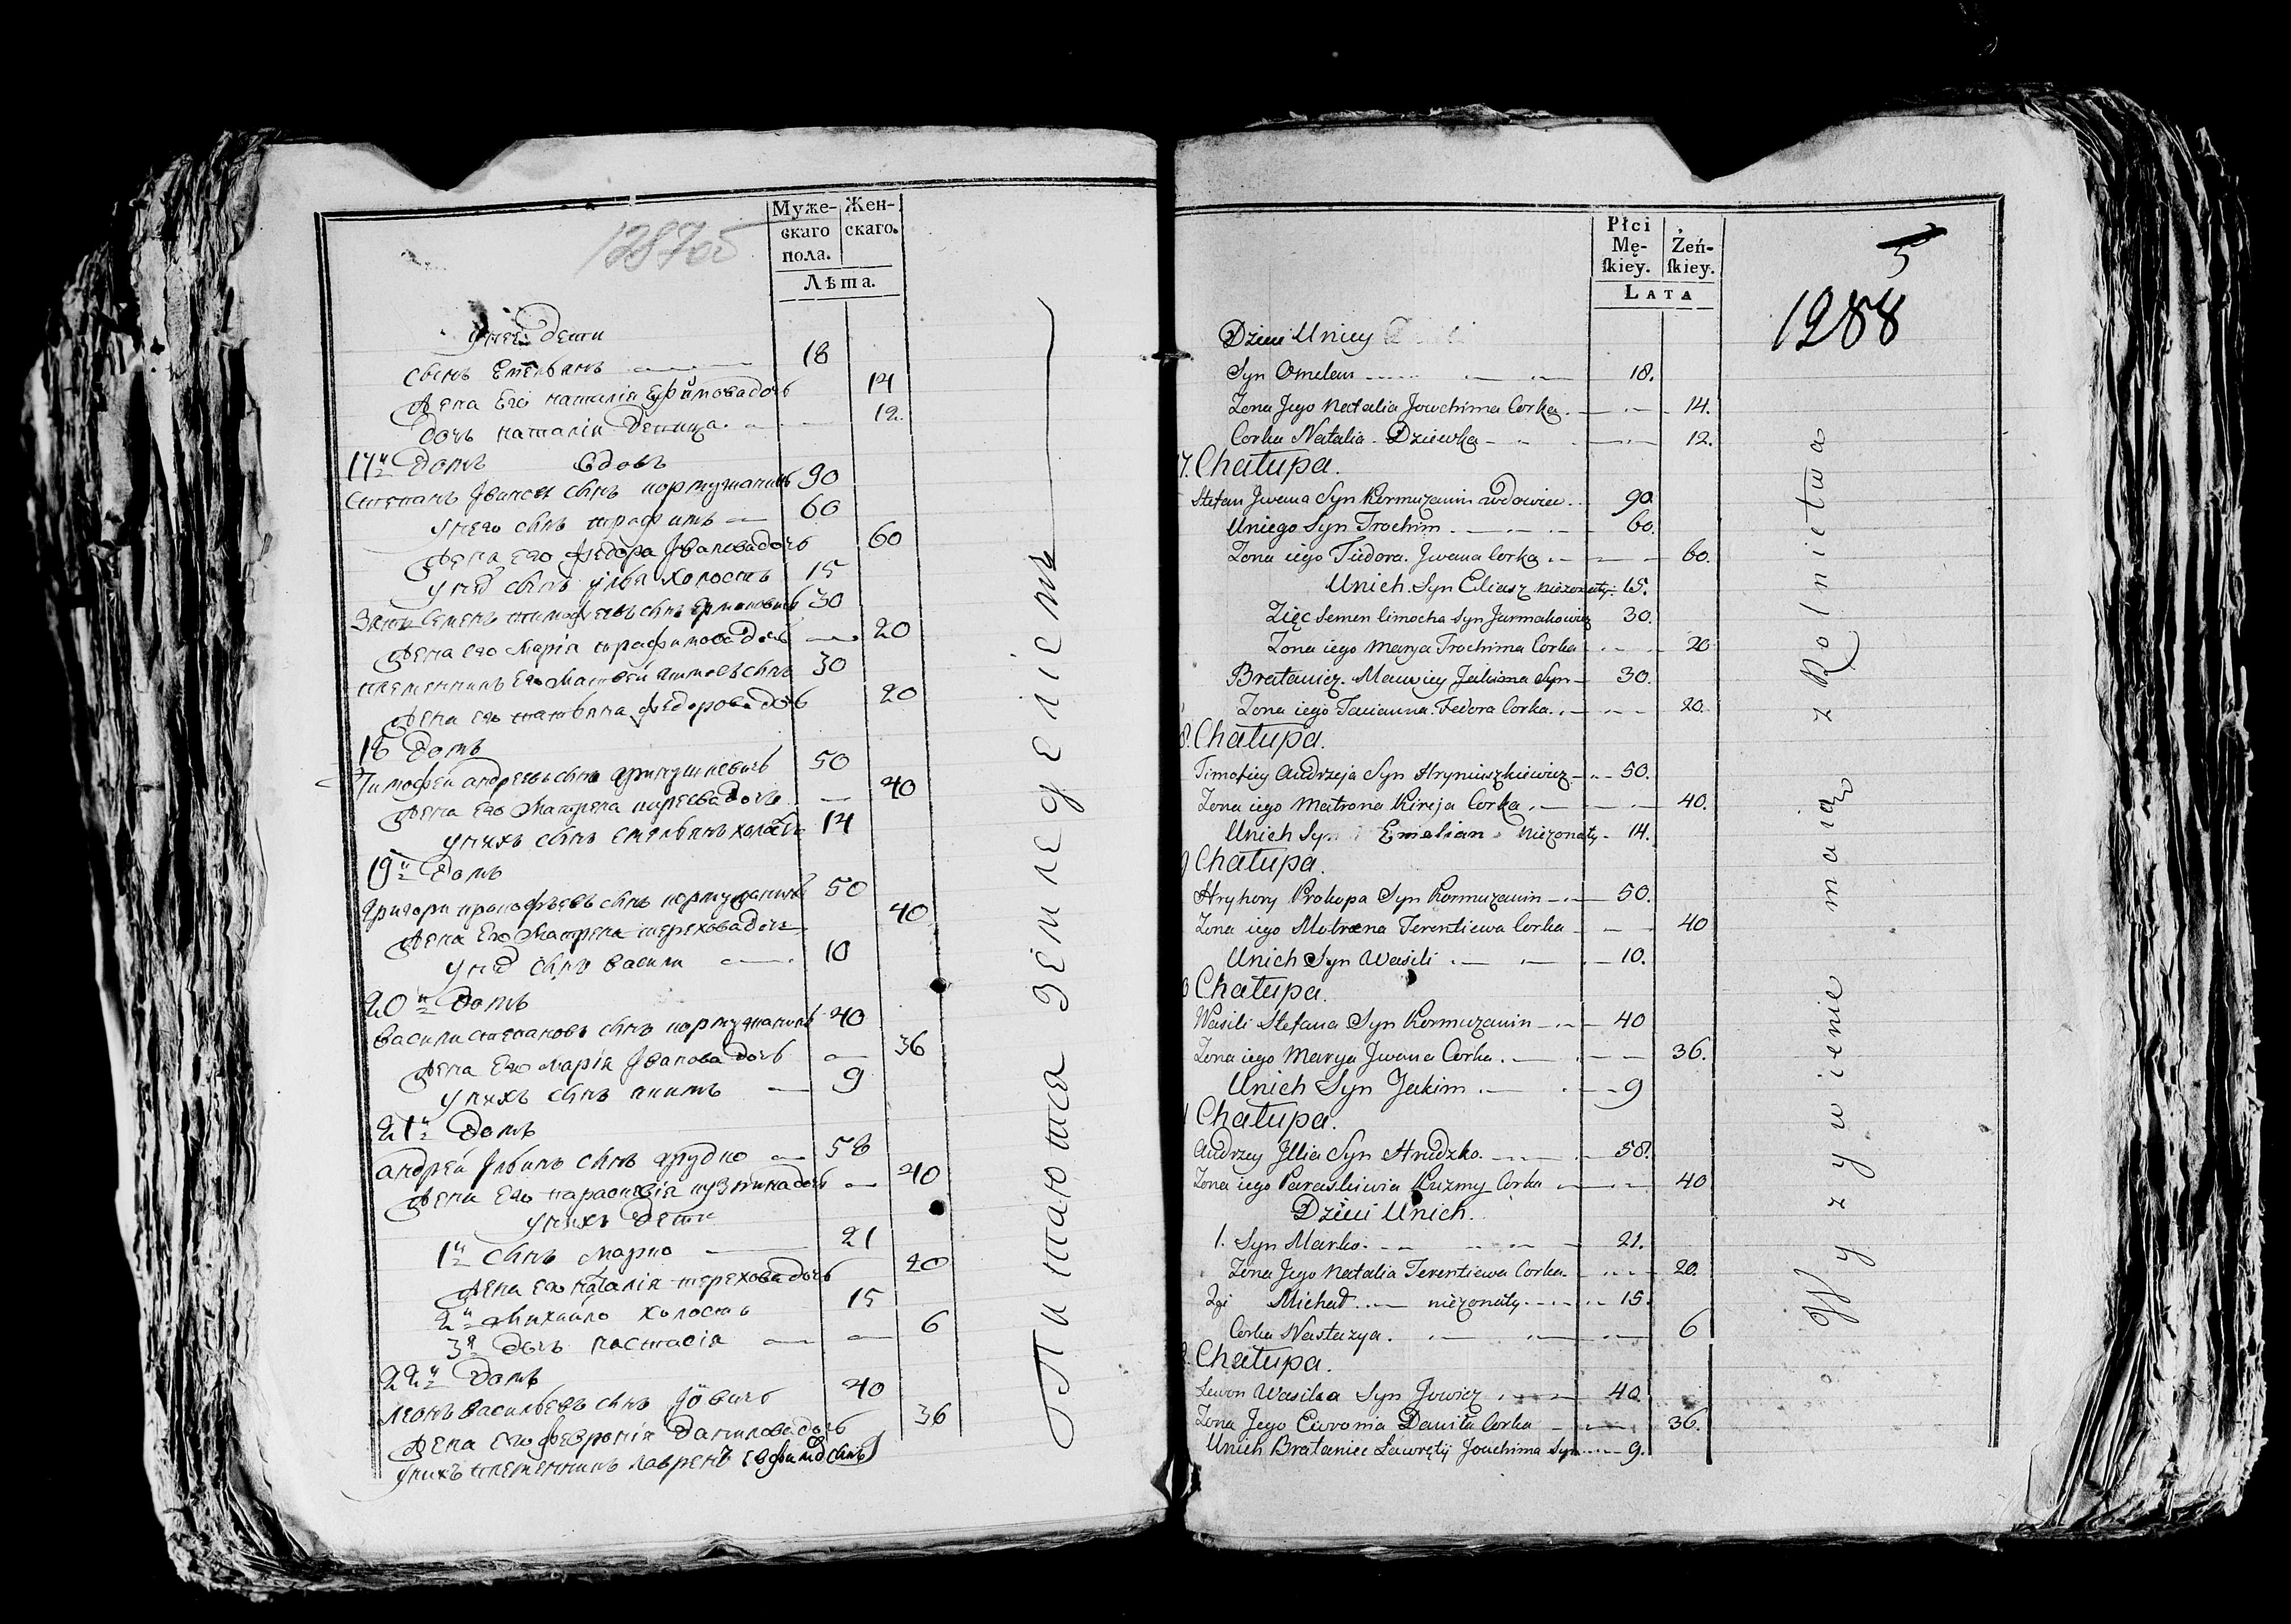 1287об
Муже-
скаго
пола.
Жен-
скаго.
Лѣта.
у нее дети
сынъ Емельянъ 18
жена Его наталія Ефимова дочь 14
дочь наталія девица 12.
17й домъ вдовъ
Степанъ Ивановъ сынъ кормужанинъ 90
у него сынъ трафимъ 60
жена его федора Іванова дочь 60
у них сынъ илья холостъ 15
Зять Семенъ тимофеевъ сынъ Ермаковичь 30
жена его Марія трафимова дочь 20
племенникъ Его Матвей якимовъ сынъ 30
жена его татьяна федорова дочь 20
18 домъ
Тимофей андреевъ сынъ гринушкевичь 50
жена Его Матрена киреева дочь 40
у нихъ сынъ емельянъ холостъ 14
19й домъ
Григори прокофьевъ сынъ кормужанинъ 50
жена Его Матрена терехова дочь 40
у них сынъ васили 10
20й домъ
васили степановъ сынъ кормужанинъ 40
жена Его марія Іванова дочь 36
у нихъ сынъ якимъ 9
21й домъ
андрей Ильинъ сынъ грудко 58
жена Его парасковія кузмина дочь 40
у нихъ дети
1й сынъ марко 21
жена его наталія терехова дочь 20
2й Михайло холостъ 15
3я дочь настасія 6
22й домъ
леонъ васильевъ сынъ Іовичь 40
жена его февронія данилова дочь 36
у нихъ племенникъ лаврень Ефимов сынъ 9
Питаются земледеліемъ
Płci
Mę-
ſkiey.
Żeń-
ſkiey.
LATA
5
1288
Dzieci Uniey
Syn Omelan 18.
Zona Jego Natalia Jowchima Corka 14.
Corka Natalia Dziewka 12.
7. Chałupa.
Stefan Jwana Syn Kormuzanin wdowiec 90.
Uniego Syn Trochim 60.
Zona iego Fiedora Jwana Corka 60.
Unich Syn Eliasz niezonaty 15.
Zięc Semen Timocha Syn Jurmakowicz 30.
Zona iego Marya Trochima Corka 20
Bratanicz Mawiey Jakima Syn 30.
Zona iego Tacianna Fedora Corka 20.
8. Chałupa.
Timofiey Andrzeja Syn Hryniuszkiewicz 50.
Zona iego Matrona Kireja Corka 40.
Unich Syn Emelian niezonaty 14.
9 Chałupa.
Hryhory Prokopa Syn Kormuzanin 50.
Zona iego Motrena Terentiewa Corka 40
Unich Syn Wasili 10.
0 Chałupa.
Wasili Stefana Syn Kormuzanin 40
Zona iego Marya Jwana Corka 36.
Unich Syn Jakim 9
1 Chałupa.
Andrzey Jllia Syn Hrudzko 58.
Zona iego Paraskiewia Kuzmy Corka 40
Dzieci Unich.
1. Syn Marko 21.
Zona Jego Natalia Terentiewa Corka 20.
2gi Michał niezonaty 15.
Corka Nastazya 6
2. Chałupa.
Lewon Wasila Syn Jowicz 40.
Zona Jego Ewronia Daniła Corka 36.
Unich Brataniec Ławręty Jouchima Syn 9.
Wyzywienie maią z Rolnictwa